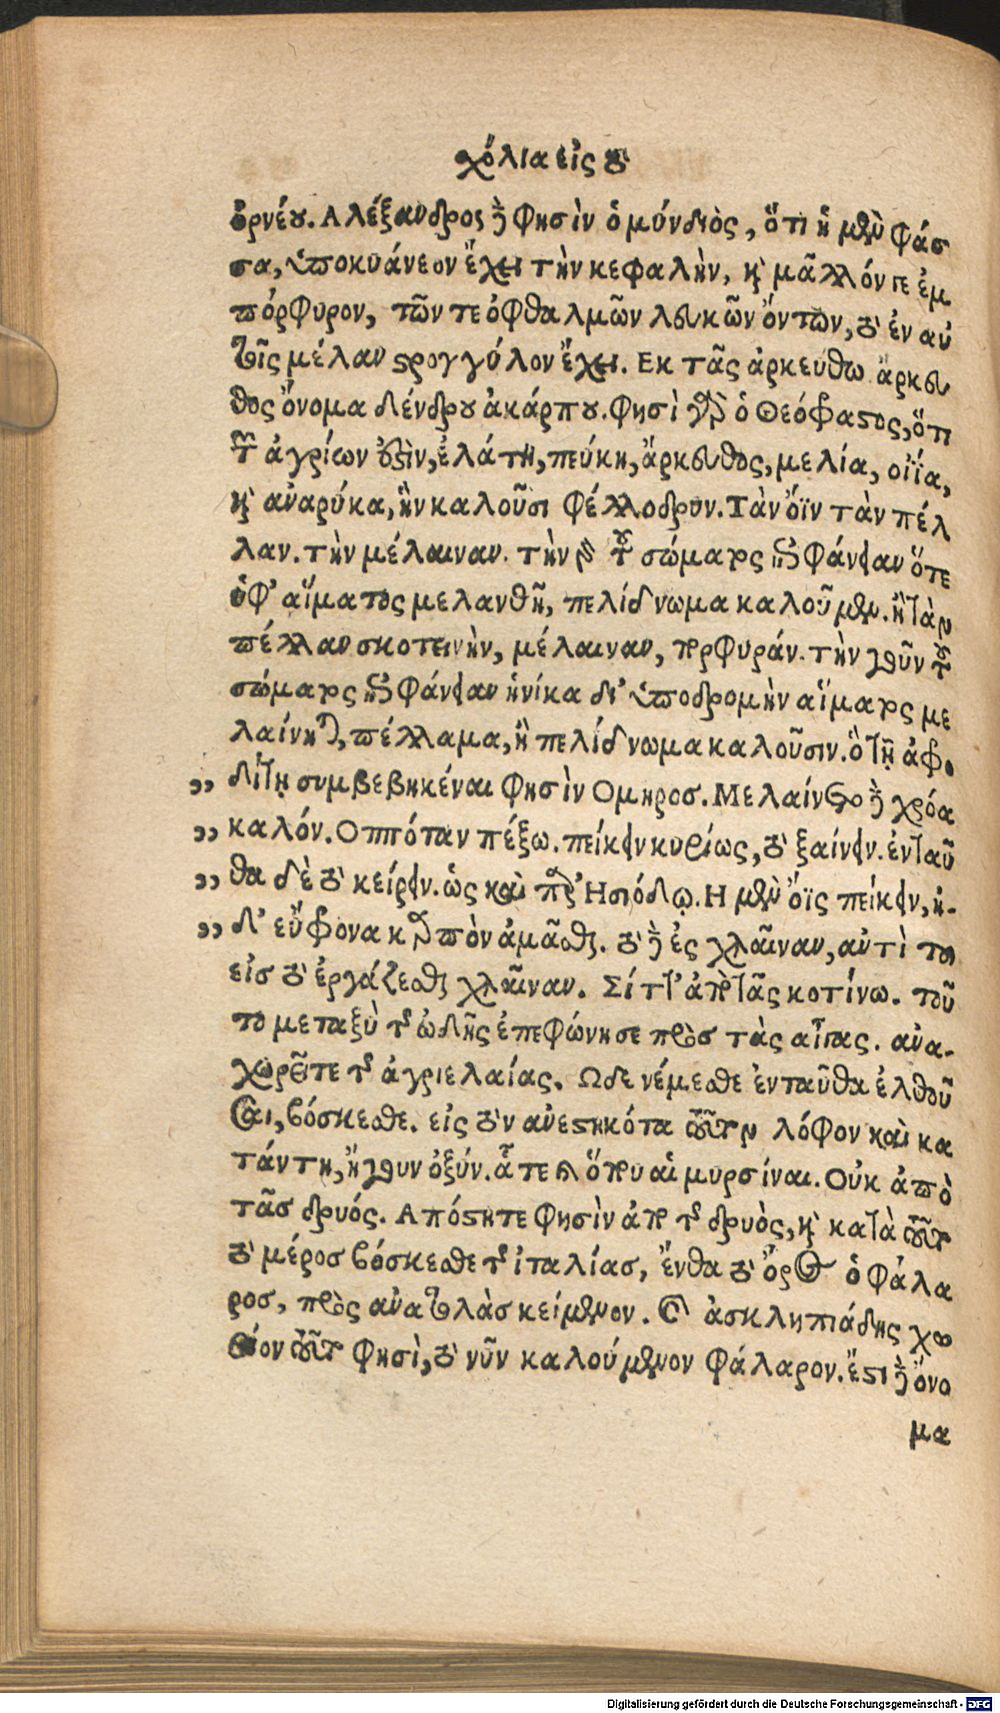 χόλια εἰς τὸ
ὀρνέου. Αλέξανδρος δέ φησὶν ὁ μύνδιὸς, ὅτι ἡ μὲν φάσ
σα, ὑποκυάνεον ἔχει τὴν κεφαλὴν, καὶ μᾶλλόν τε ἐμ
πόρφυρον, τῶν τε ὀφθαλμῶν λευκῶν ὄντων, τὸ ἐν αὐ
τοῖς μέλαν στρογγύλον ἔχει. Εκ τᾶς ἀρκεύθω ἄρκευ
θος ὄνομα δένδρου ἀκάρπου. φησὶ γὰρ ὁ Θεόφραστος, ὅτι
τῶν ἀγρίων ἐστὶν, ἐλάτη, πεύκη, ἄρκευθος, μελία, οἰΐα,
καὶ αὐαρύκα, ἣν καλοῦσι φέλλοδρυν. Τὰν ὄϊν τὰν πέλ
λαν. τὴν μέλαιναν. τὴν γὰρ τοῦ σώματος ἐπιφάνειαν ὅτε
ὑφ' αἵματος μελανθῆ, πελίδνωμα καλοῦμεν. ἢ τὰν
πέλλαν σκοτεινὴν, μέλαιναν, πορφυράν. τὴν γοῦν τοῦ
σώματος ἐπιφάνειαν ἡνίκα δι' ὑποδρομὴν αἵματος με
λαίνηται, πέλλαμα, ἢ πελίδνωμα καλοῦσιν. ὃ τῇ ἀφρο
„ δίτῃ συμβεβηκέναι φησὶν Ομηροσ. Μελαίνετο δὲ χρόα
„ καλόν. Οππόταν πέξω. πείκειν κυρίως, τὸ ξαίνειν. ἐνταῦ
„ θα δὲ τὸ κείρειν. ὡς καὶ παρ' Ἡσιόδῳ. Η μὲν ὄϊς πείκειν, ἠ-
„ δ' εὔφρονα καρπὸν ἀμᾶσθαι. τὸ δὲ ἐς χλαῖναν, αὐτὶ του
εἰσ τὸ ἐργάζεσθαι χλαῖναν. Σίττ' ἀπὸ τᾶς κοτίνω. τοῦ
το μεταξὺ τῆς ὠδῆς ἐπεφώνησε πρὸσ τὰς αἶγας. αὐα-
χωρεῖτε τῆς ἀγριελαίας. Ωδε νέμεσθε ἐνταῦθα ἐλθοῦ
σαι, βόσκεσθε. εἰς τὸν αὐεστηκότα τοῦτον λόφον καὶ κα
τάντη, ἤγουν ὀξύν. ἇ τε καὶ ὅπου αἱ μυρσίναι. Οὐκ ἀπὸ
τᾶσ δρυός. Απόστητε φησὶν ἀπὸ τῆς δρυὸς, καὶ κατὰ τοῦτο
τὸ μέροσ βόσκεσθε τῆς ἰταλίασ, ἔνθα τὸ ὄρος ὁ φάλα
ροσ, πρὸς αὐατολὰσ κείμενον. καὶ ἀσκληπιάδης χω
ρίον τοῦτο φησὶ, τὸ νῦν καλούμενον φάλαρον. ἔστι δὲ ὄνο
μα
Digitalisierung gefördert durch die Deutsche Forschungsgemeinschaft - DFG